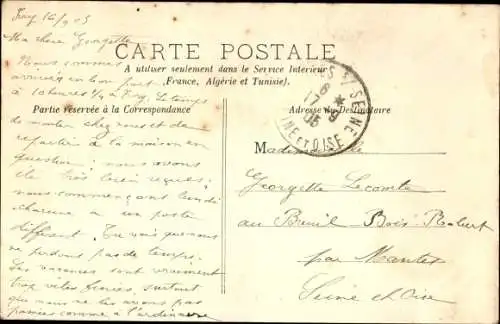 Issy 16/9 05
Ma chère Georgette
Nous sommes
arrivés en bon port
à 10 heures 1/4 à Issy. Le temps
de monter chez nous et de
repartir à la maison en
question; nous avons
été très bien reçues;
nous commençons lundi
chacune à un poste
différent. Tu vois que nous
ne perdons pas de temps.
Les vacances sont vraiment
trop vites passées, surtout
que nous ne les avons pas
passées comme à l'ordinaire
CARTE POSTALE
A utiliser seulement dans le Service Intérieur
(France, Algérie et Tunisie).
Partie réservée à la Correspondance
Adresse du Destinataire
S/ SEINE
17 9 05
SEINE ET OISE
Mademoiselle
Georgette Lecomte
au Breuil Bois-Robert
par Mantes
Seine et Oise